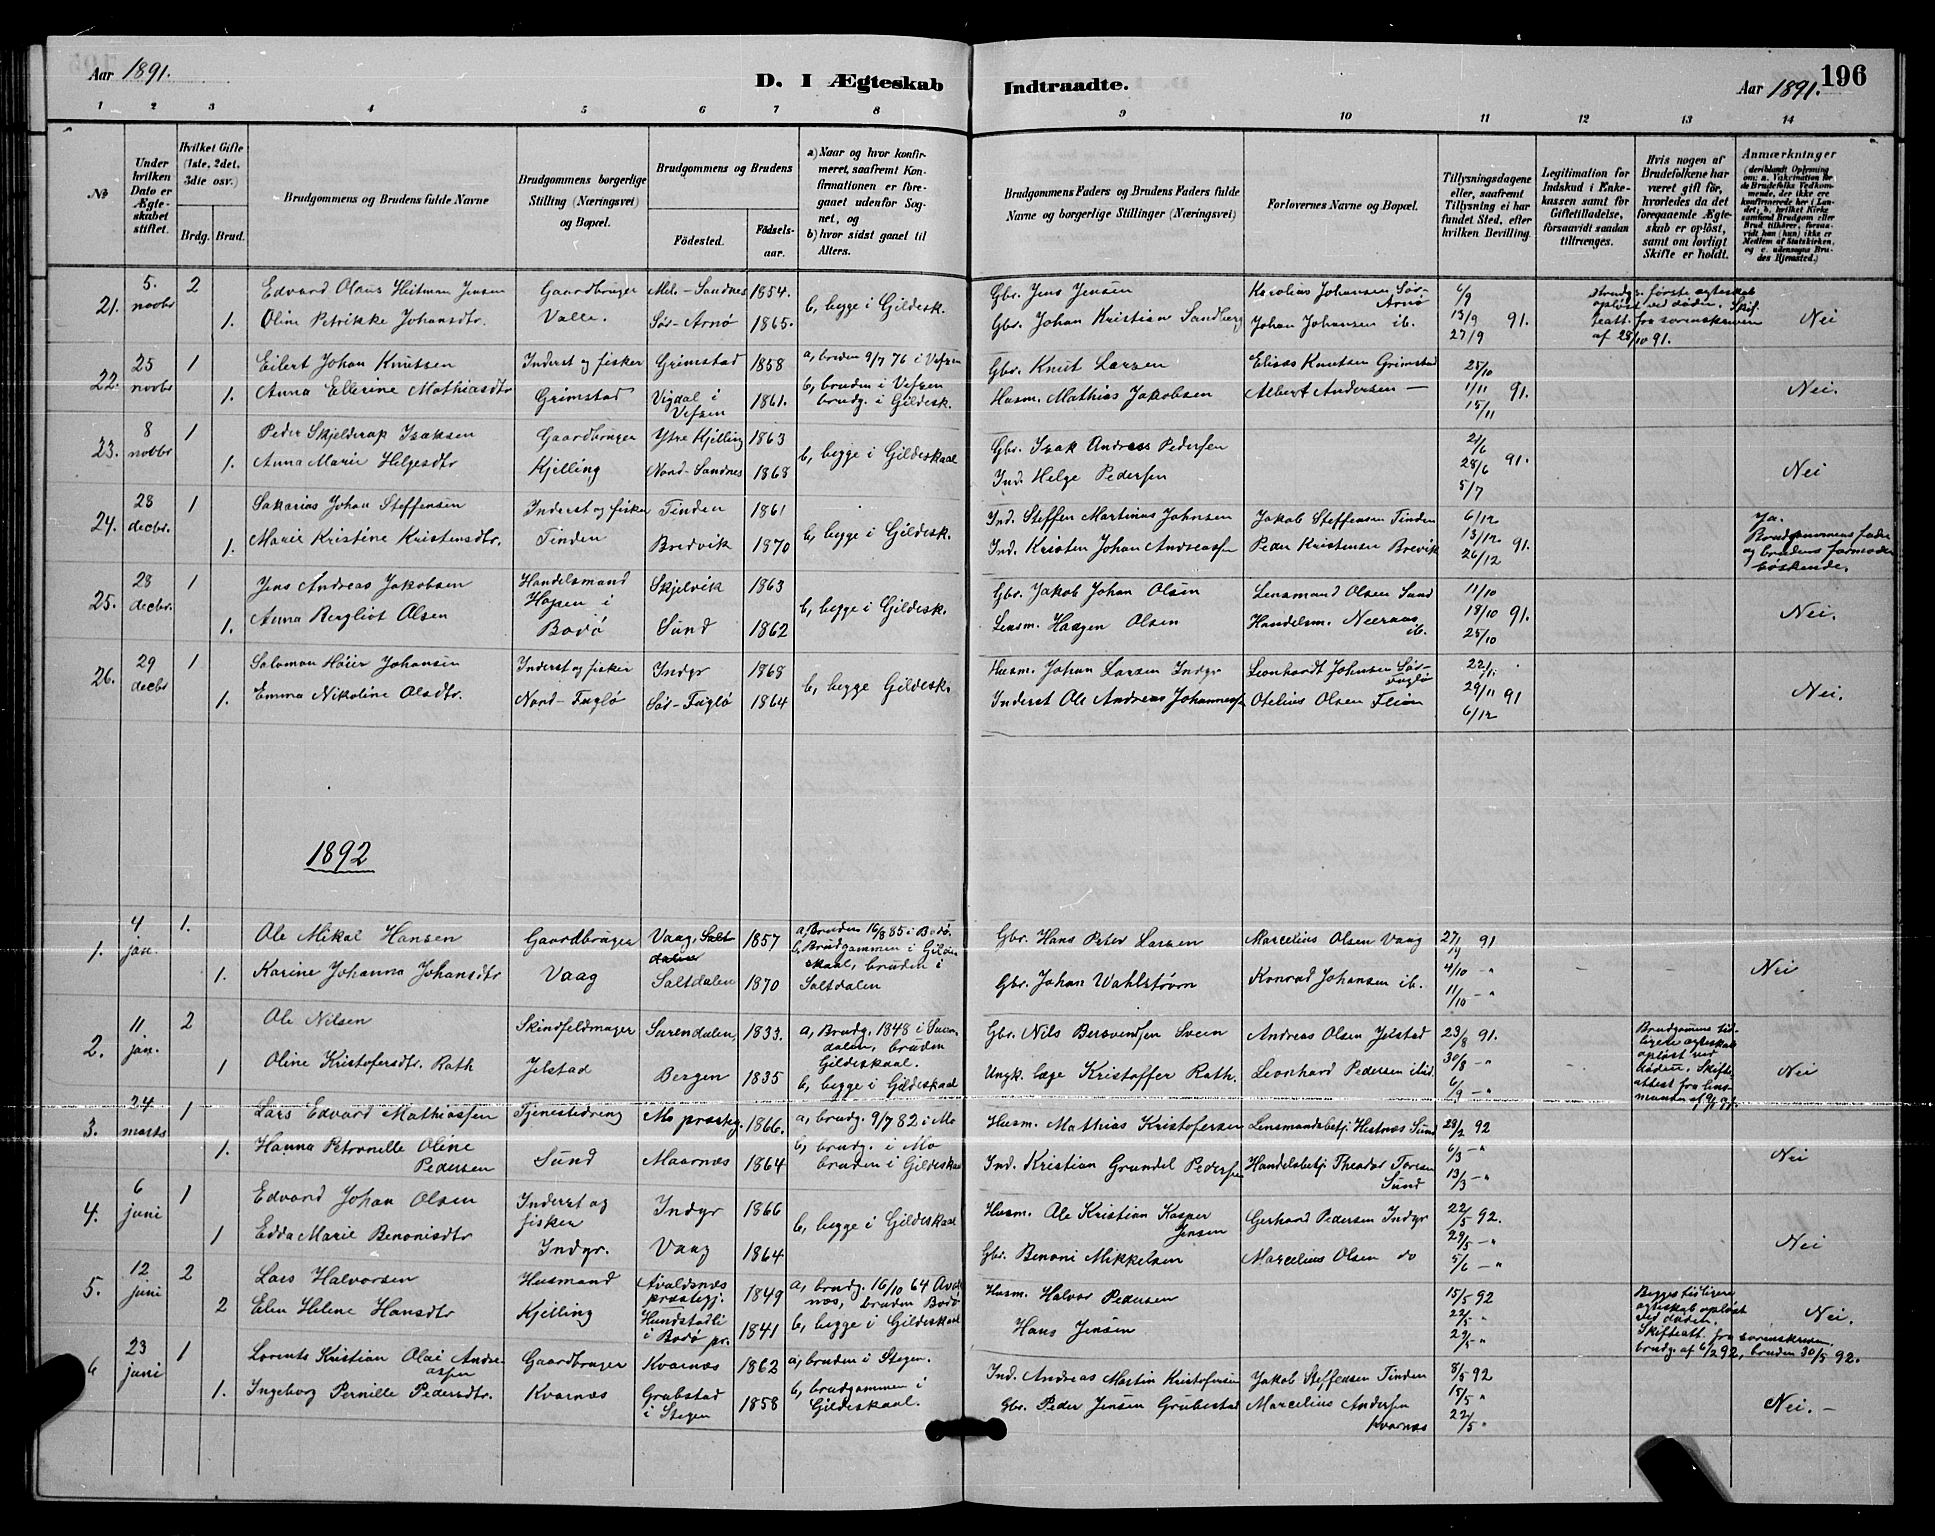 Aar 1891.
D. I Ægteskab Indtraadte.
Aar 1891.
196
1 2 3 4 5 6 7 8 9 10 11 12 13 14
No
Under hvilken Dato er Ægteskabet stiftet.
Hvilket Gifte (1ste, 2det, 3die osv.)
Brdg. Brud.
Brudgommens og Brudens fulde Navne
Brudgommens borgerlige Stilling (Næringsvei) og Bopæl.
Brudgommens og Brudens
Födested. Födselsaar.
a) Naar og hvor konfirmeret, saafremt Konfirmationen er foregaaet udenfor Sognet, og
b) hvor sidst gaaet til Alters.
Brudgommens Faders og Brudens Faders fulde Navne og borgerlige Stillinger (Næringsvei)
Forlovernes Navne og Bopæl.
Tillysningsdagene eller, saafremt Tillysning ei har fundet Sted, efter hvilken Bevilling
Legitimation for Indskud i Enkekassen samt for Giftetilladelse, forsaavidt saadan tiltrænges.
Hvis nogen af Brudefolkene har været gift för, hvorledes da det foregaaende Ægteskab er oplöst, samt om lovligt Skifte er holdt.
Anmærkninger (deriblandt Oplysning om: a. Vakcination for de Brudefolks Vedkommende, der ikke ere konfirmerede her i Landet; b. hvilket Kirkesamfund Brudgom eller Brud tilhörer, forsaavidt han (hun) ikke er Medlem af Statskirken, og c. udensogns Brudes Hjemsted.)
21. 5. novbr 2 Edvard Olaus Heitman Jensen Gaardbruger Mel.-Sandnes 1854. b, begge i Gildesk. Gbr. Jens Jensen Karolius Johansen Sör-Arnö 6/9 Brudg. første egteskab opløst ved døden. Skifteatt. fra sorenskriveren af 28/10 91.
1. Oline Petrikke Johansdtr. Valle. Sör-Arnö 1865. Gbr. Johan Kristian Sandberg Johan Johansen ib. 13/9 91. 27/9 Nei
22. 25 novbr 1 Eilert Johan Knutsen Inderst og fisker Grimstad 1858 a, bruden 9/7 76 i Vefsen Gbr. Knut Larsen Elisas Knutsen Grimstad 25/10
1. Anna Ellerine Mathiasdtr Grimstad Vigdal i Vefsen 1861. b, bruden i Vefsen brudg. i Gildesk. Husm. Mathias Jakobsen Albert Andersen — 1/11 91. 15/11 Nei.
23. 8 novbr 1 Peder Skjelderup Isaksen Gaardbruger Ytre Kjelling 1863 b, begge i Gildeskaal Gbr. Isak Andreas Pedersen 21/6
1. Anna Marie Helgesdtr Kjelling Nord-Sandnes 1868 Ind. Helge Pedersen 28/6 91. 5/7 Nei
24. 28 decbr. 1 Sakarias Johan Steffensen Inderst og fisker Tinden 1861 b, begge i Gildesk. Ind. Steffen Martinus Johnsen Jakob Steffensen Tinden 6/12 Ja. Brudgommens fader og brudens farmoder søskende.
1. Marie Kristine Kristensdtr. Tinden Bredvik 1870 Ind. Kristen Johan Andreassen Peder Kristensen Brevik 13/12 91. 26/12
25. 28 decbr. 1 Jens Andreas Jakobsen Handelsmand Skjelvik 1863 b, begge i Gildesk. Gbr. Jakob Johan Olsen Lensmand Olsen Sund 11/10
1. Anna Bergliot Olsen Hopen i Bodø Sund 1862 Lensm. Haagen Olsen Handelsm. Neeraas ib. 18/10 91. 25/10 Nei.
26. 29 decbr 1 Salomon Høier Johansen Inderst og fisker Indyr 1868 b, begge Gildesk. Husm. Johan Larsen Indyr Leonhardt Johnsen Sör-Fuglö 22/11
1. Emma Nikoline Olsdtr. Nord-Fuglö Sör-Fuglö 1864 Inderst Ole Andreas Johannessen Otelius Olsen Fleina 29/11 91 6/12 Nei.
1892
1. 4 jan. 1. Ole Mikal Hansen Gaardbruger Vaag, Saltdalen 1857 a, Bruden 16/8 85 i Bodø. Gbr. Hans Peter Larsen Marcelius Olsen Vaag 27/9 91
1. Karine Johanna Johansdtr Vaag Saltdalen 1870 b, Brudgommen i Gildeskaal, bruden i Saltdalen Gbr. Johan Wahlstrøm Konrad Johansen ib. 4/10 — " 11/10 — " Nei
2. 11 jan. 2 Ole Nilsen Skindfeldmager Surendalen 1833. a, Brudg. 1848 i Surndalen, bruden Gildeskaal. Gbr. Nils Bersvendsen Sveen Andreas Olsen Jelstad 23/8 91. Brudgommens tidligere egteskab opløst ved døden. Skifteattest fra lensmanden
1 Oline Kristofersdtr. Rath Jelstad Bergen 1835 b, begge i Gildeskaal Ungk. læge Kristoffer Rath. Leonhard Pedersen ibid. 30/8 — " 6/9 — " Nei
3. 24 marts 1 Lars Edvard Mathiassen Tjenestedreng Mo præsteg. 1866. a, brudg. 9/7 82 i Mo Husm. Mathias Kristofersen Lensmandsbetj. Hestnæs Sund 28/2 92
1. Hanna Petronelle Oline Pedersen Sund Maarnæs 1864 b, brudg. i Mo bruden i Gildeskaal Ind. Kristian Grundel Pedersen Handelsbetj. Theodor Toresen Sund 6/3 — " 13/3 — " Nei
4. 6 juni 1 Edvard Johan Olsen Inderst og fisker Indyr 1866 b, begge i Gildeskaal Husm. Ole Kristian Kasper Jensen Gerhard Pedersen Indyr 22/5 92.
1 Edda Marie Benonisdtr Indyr. Vaag 1864 Gbr. Benoni Mikkelsen Marcelius Olsen do 29/5 — " 5/6 — " Nei
5. 12 juni 2 Lars Halvorsen Husmand Avaldsnæs præstegj. 1849 a, brudg. 16/10 64 Avaldsnæs, bruden Bodø Husm. Halvor Pedersen 15/5 92 Begges tidligere egteskab opløst ved døden. Skifteatt. fra sorenskriveren, brudg. af 6/2 92, bruden 30/5 92.
2 Elen Helene Hansdtr Kjelling Hundstadli i Bodø pr. 1841 b, begge i Gildeskaal Hans Jensen 22/5 — " 29/5 — " Nei.
6 23 juni 1 Lorents Kristian Olai Andreassen Gaardbruger Kvarnæs 1862 a, bruden i Stegen. Ind. Andreas Martin Kristofersen Jakob Steffensen Tinden 8/5 92
1. Ingeborg Pernille Pedersdtr. Kvarnæs Grubstad i Stegen 1858 b, brudgommen i Gildeskaal. Gbr. Peder Jensen Grubestad Marcelius Andersen Kvarnæs 15/5 " 22/5 " Nei. —